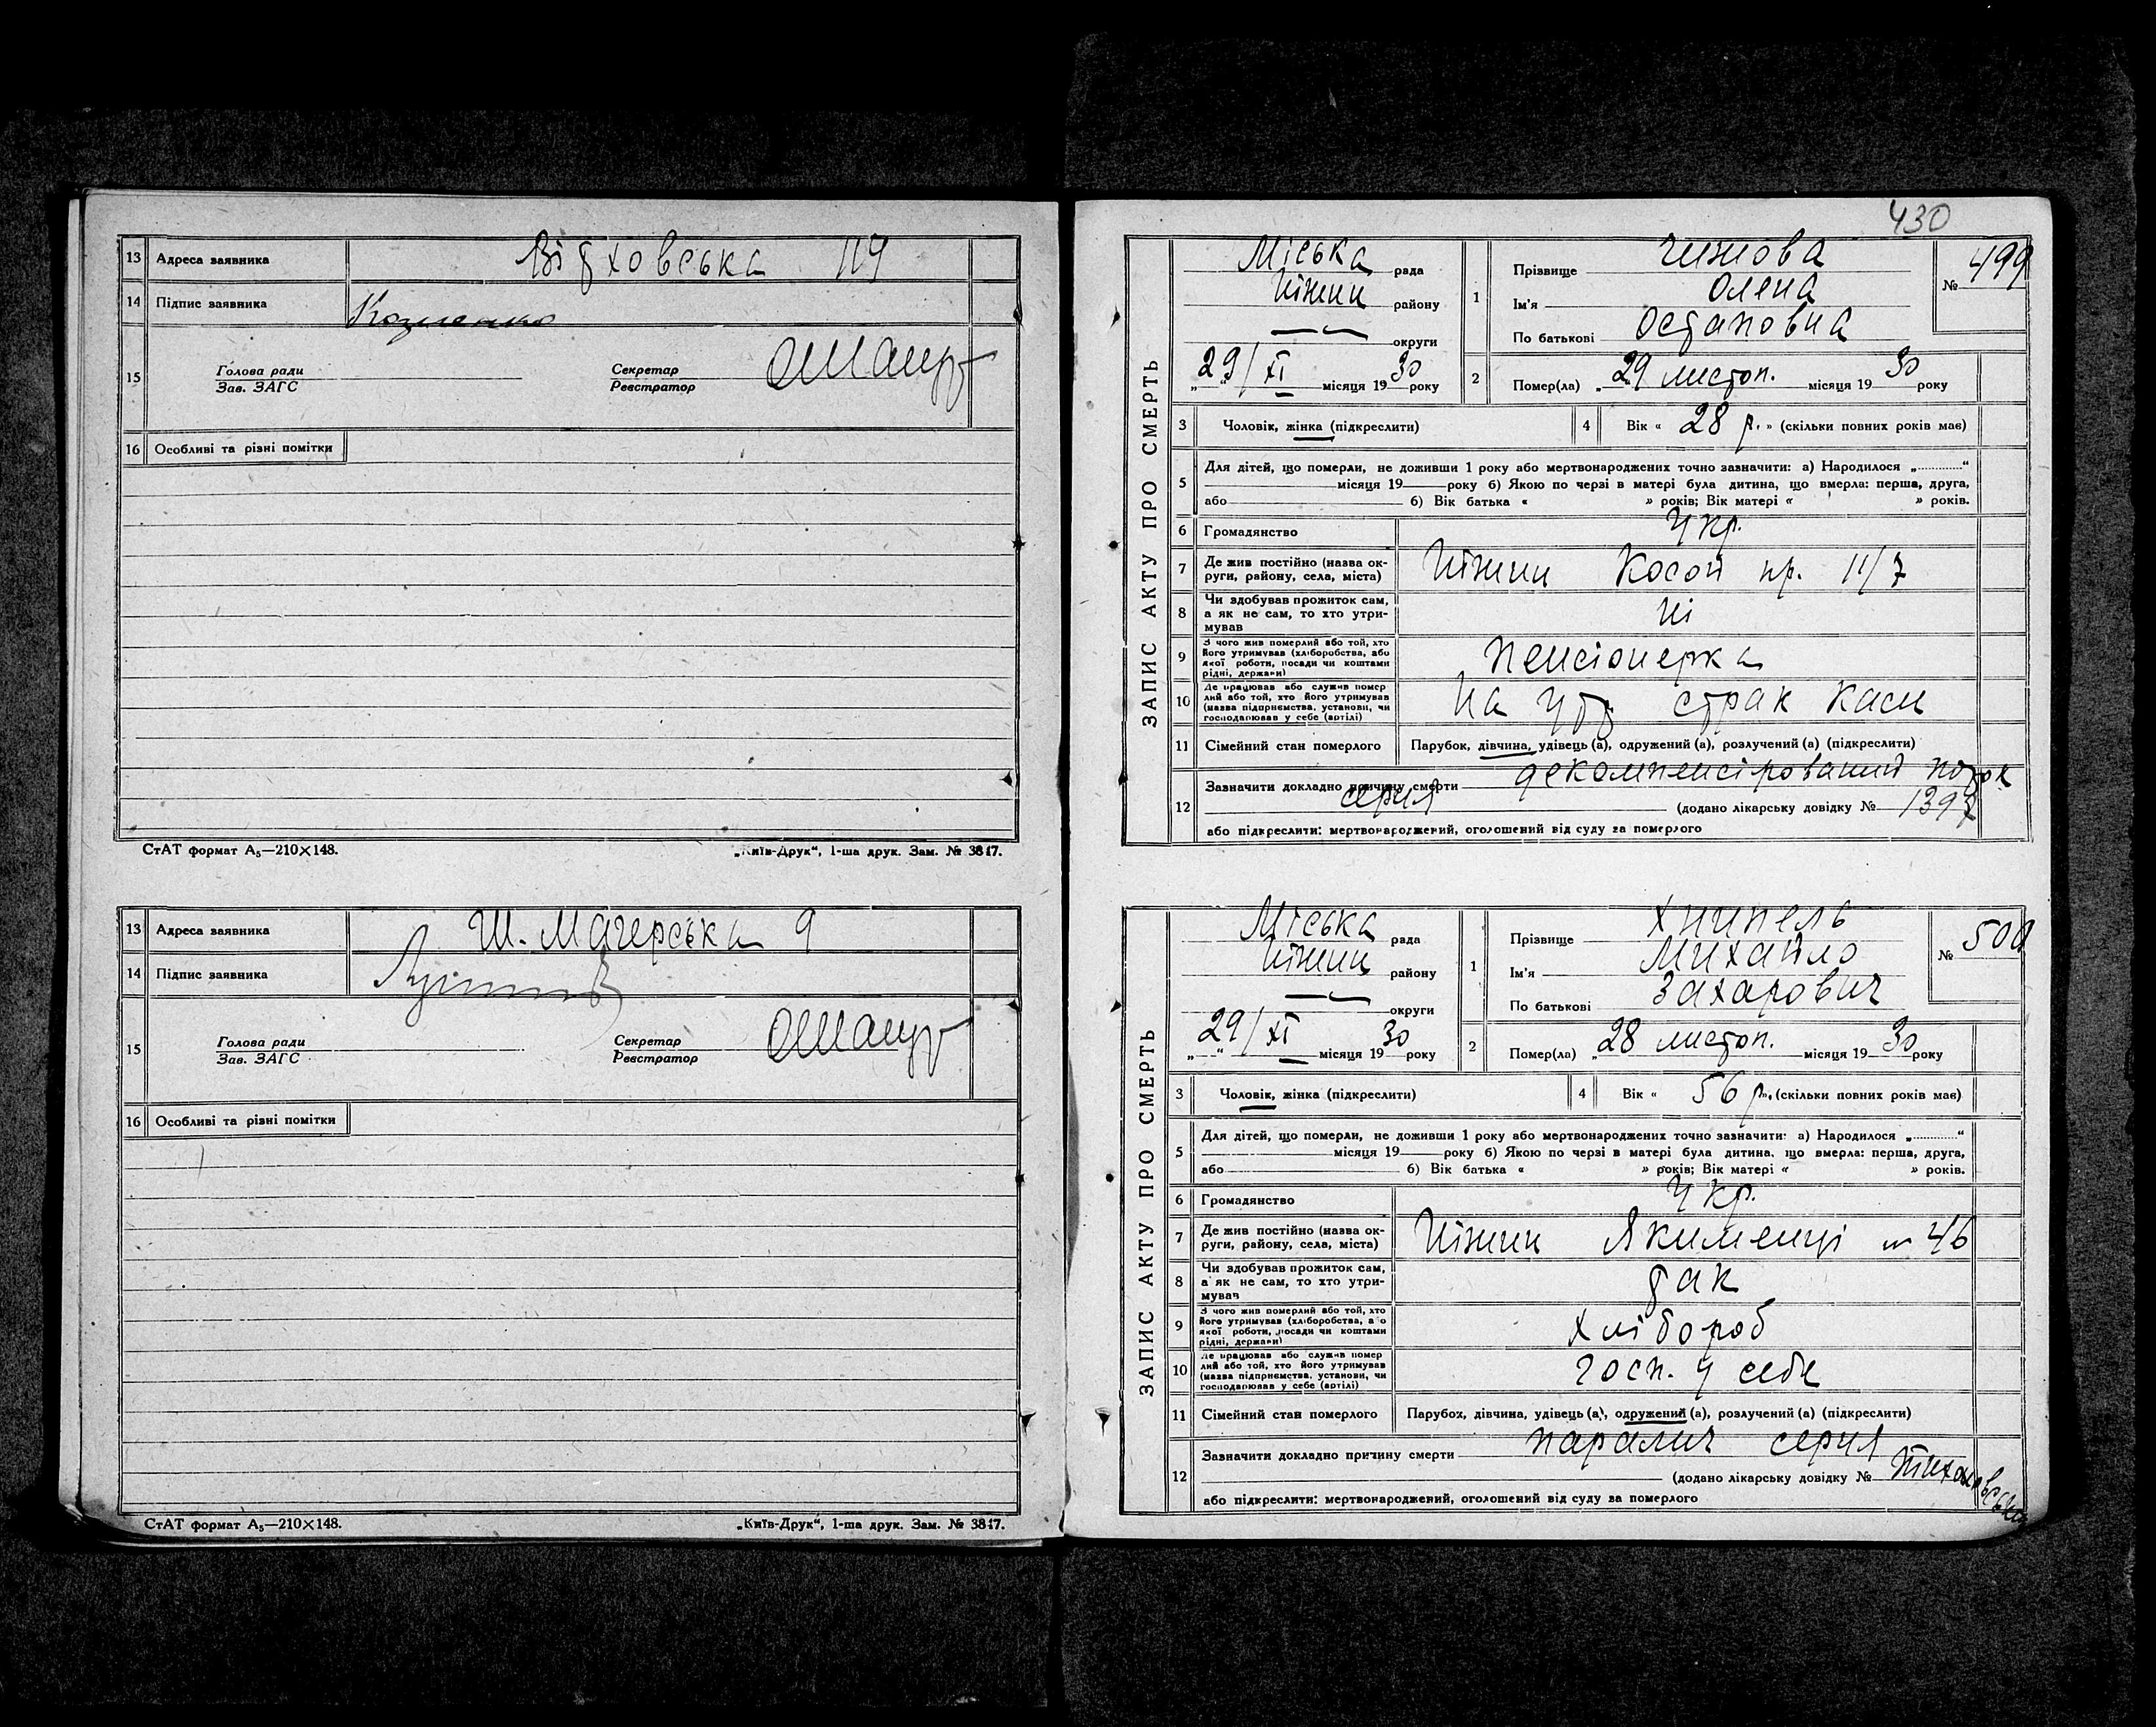 13 Адреса заявника Вітховська 119
14 Підпис заявника Козленко
15 Голова ради
Зав. ЗАГС
Секретар
Реєстратор
16 Особливі та різні помітки
СтАТ формат А₅—210×148. „Київ-Друк“, 1-ша друк. Зам. № 3817.
13 Адреса заявника Ш. Магерська 9
14 Підпис заявника
15 Голова ради
Зав. ЗАГС
Секретар
Реєстратор
16 Особливі та різні помітки
СтАТ формат А₅—210×148. „Київ-Друк“, 1-ша друк. Зам. № 3817.
430
ЗАПИС АКТУ ПРО СМЕРТЬ
Міська рада
Ніжин району
округи
„29/XI місяця 1930 року
1 Прізвище Чижова
Ім'я Олена
По батькові Остаповна
№ 499
2 Помер(ла) „29 листоп. місяця 1930 року
3 Чоловік, жінка (підкреслити) 4 Вік « 28 р. » (скільки повних років має)
5 Для дітей, що померли, не доживши 1 року або мертвонароджених точно зазначити: а) Народилося „............“
місяця 19 року б) Якою по черзі в матері була дитина, що вмерла: перша, друга,
або б) Вік батька « » років; Вік матері « » років.
6 Громадянство Укр.
7 Де жив постійно (назва ок-
руги, району, села, міста) Ніжин Косой пр. 11/7
8 Чи здобував прожиток сам,
а як не сам, то хто утри-
мував Ні
9 З чого жив померлий або той, хто
його утримував (хліборобства, або
якої роботи, посади чи коштами
рідні, держави) пенсіонерка
10 Де працював або служив помер
лий або той, хто його утримував
(назва підприємства, установи, чи
господарював у себе (артілі) На утр страк каси
11 Сімейний стан померлого Парубок, дівчина, удівець (а), одружений (а), розлучений (а) (підкреслити)
12 Зазначити докладно причину смерти декомпенсірований порок
серця (додано лікарську довідку № 1397
або підкреслити: мертвонароджений, оголошений від суду за померлого
ЗАПИС АКТУ ПРО СМЕРТЬ
Міська рада
Ніжин району
округи
„29/XI місяця 1930 року
1 Прізвище Хнипель
Ім'я Михайло
По батькові Захарович
№ 500
2 Помер(ла) „28 листоп. місяця 1930 року
3 Чоловік, жінка (підкреслити) 4 Вік « 56 р». (скільки повних років має)
5 Для дітей, що померли, не доживши 1 року або мертвонароджених точно зазначити: а) Народилося „............“
місяця 19 року б) Якою по черзі в матері була дитина, що вмерла: перша, друга,
або б) Вік батька « » років; Вік матері « » років.
6 Громадянство Укр.
7 Де жив постійно (назва ок-
руги, району, села, міста) Ніжин Якименці 46
8 Чи здобував прожиток сам,
а як не сам, то хто утри-
мував так
9 З чого жив померлий або той, хто
його утримував (хліборобства, або
якої роботи, посади чи коштами
рідні, держави) хлібороб
10 Де працював або служив помер
лий або той, хто його утримував
(назва підприємства, установи, чи
господарював у себе (артілі) госп. у себе
11 Сімейний стан померлого Парубок, дівчина, удівець (а), одружений (а), розлучений (а) (підкреслити)
12 Зазначити докладно причину смерти параліч серця
(додано лікарську довідку № Тихоновська
або підкреслити: мертвонароджений, оголошений від суду за померлого